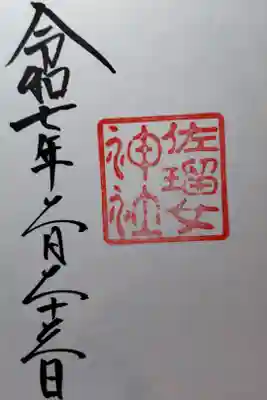 令和七年二月二十三日
佐瑠女
神社